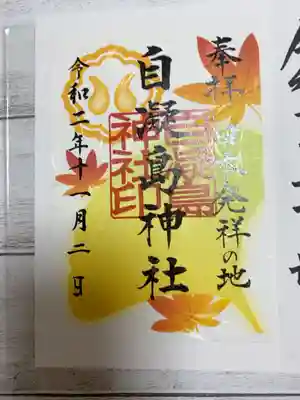 奉拝 発祥の地
自凝島神社
自凝島
神社印
令和二年十一月二日